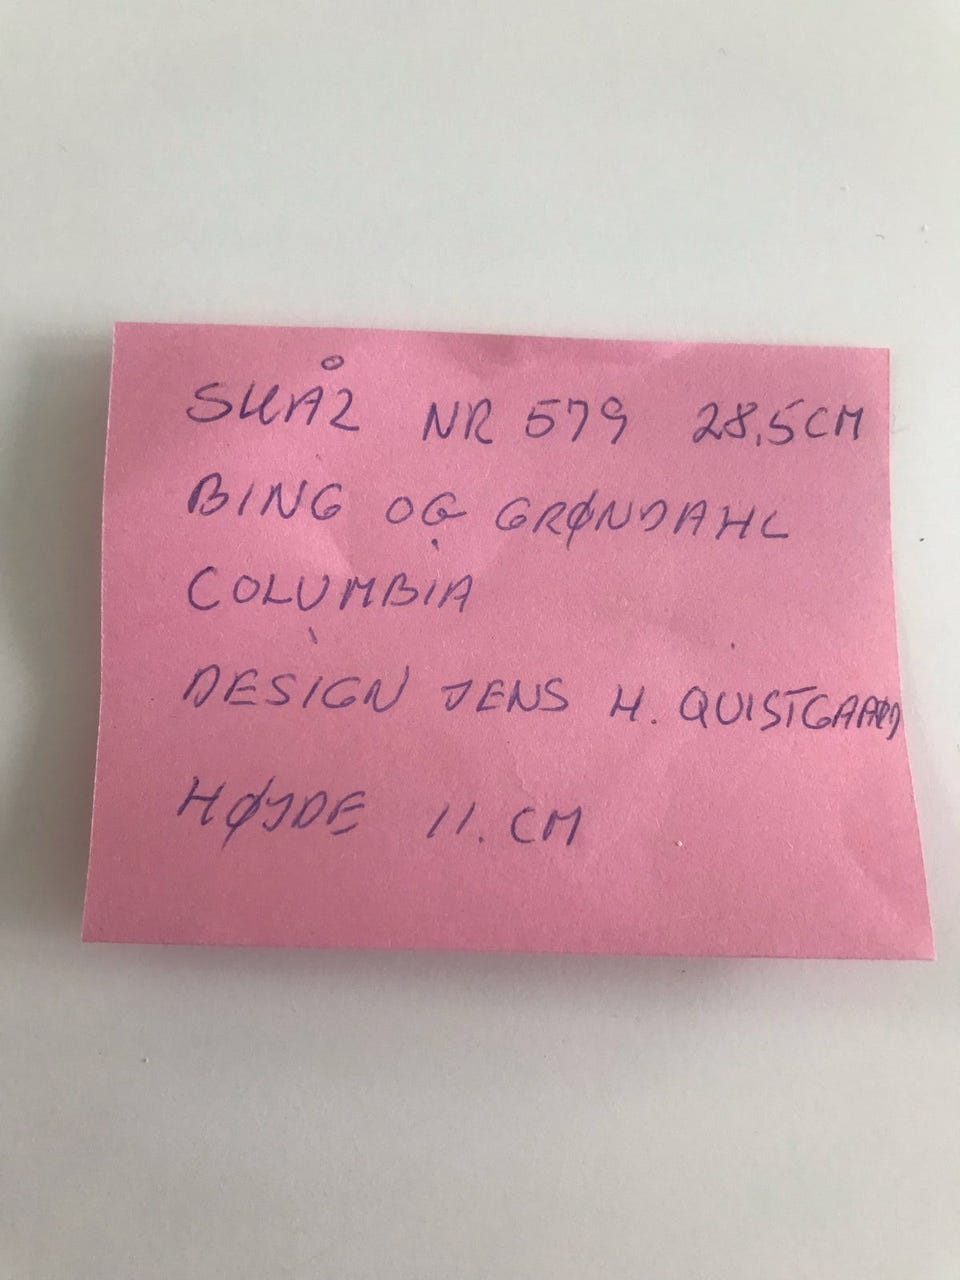 SKÅL NR 579 28,5CM
BING OG GRØNDAHL
COLUMBIA
DESIGN JENS H. QUISTGAARD
HØJDE 11. CM